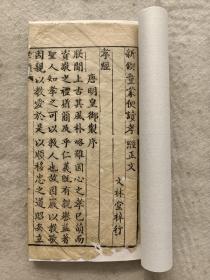 新鐫童蒙便讀孝經正文
文林堂梓行
孝經
唐明皇御製序
朕聞上古其風朴略雖因心之孝已萌而
資敬之禮猶簡及乎仁義既有親譽益著
聖人知孝之可以教人也故因嚴以教敬
因親以教愛於是以順移忠之道昭矣立